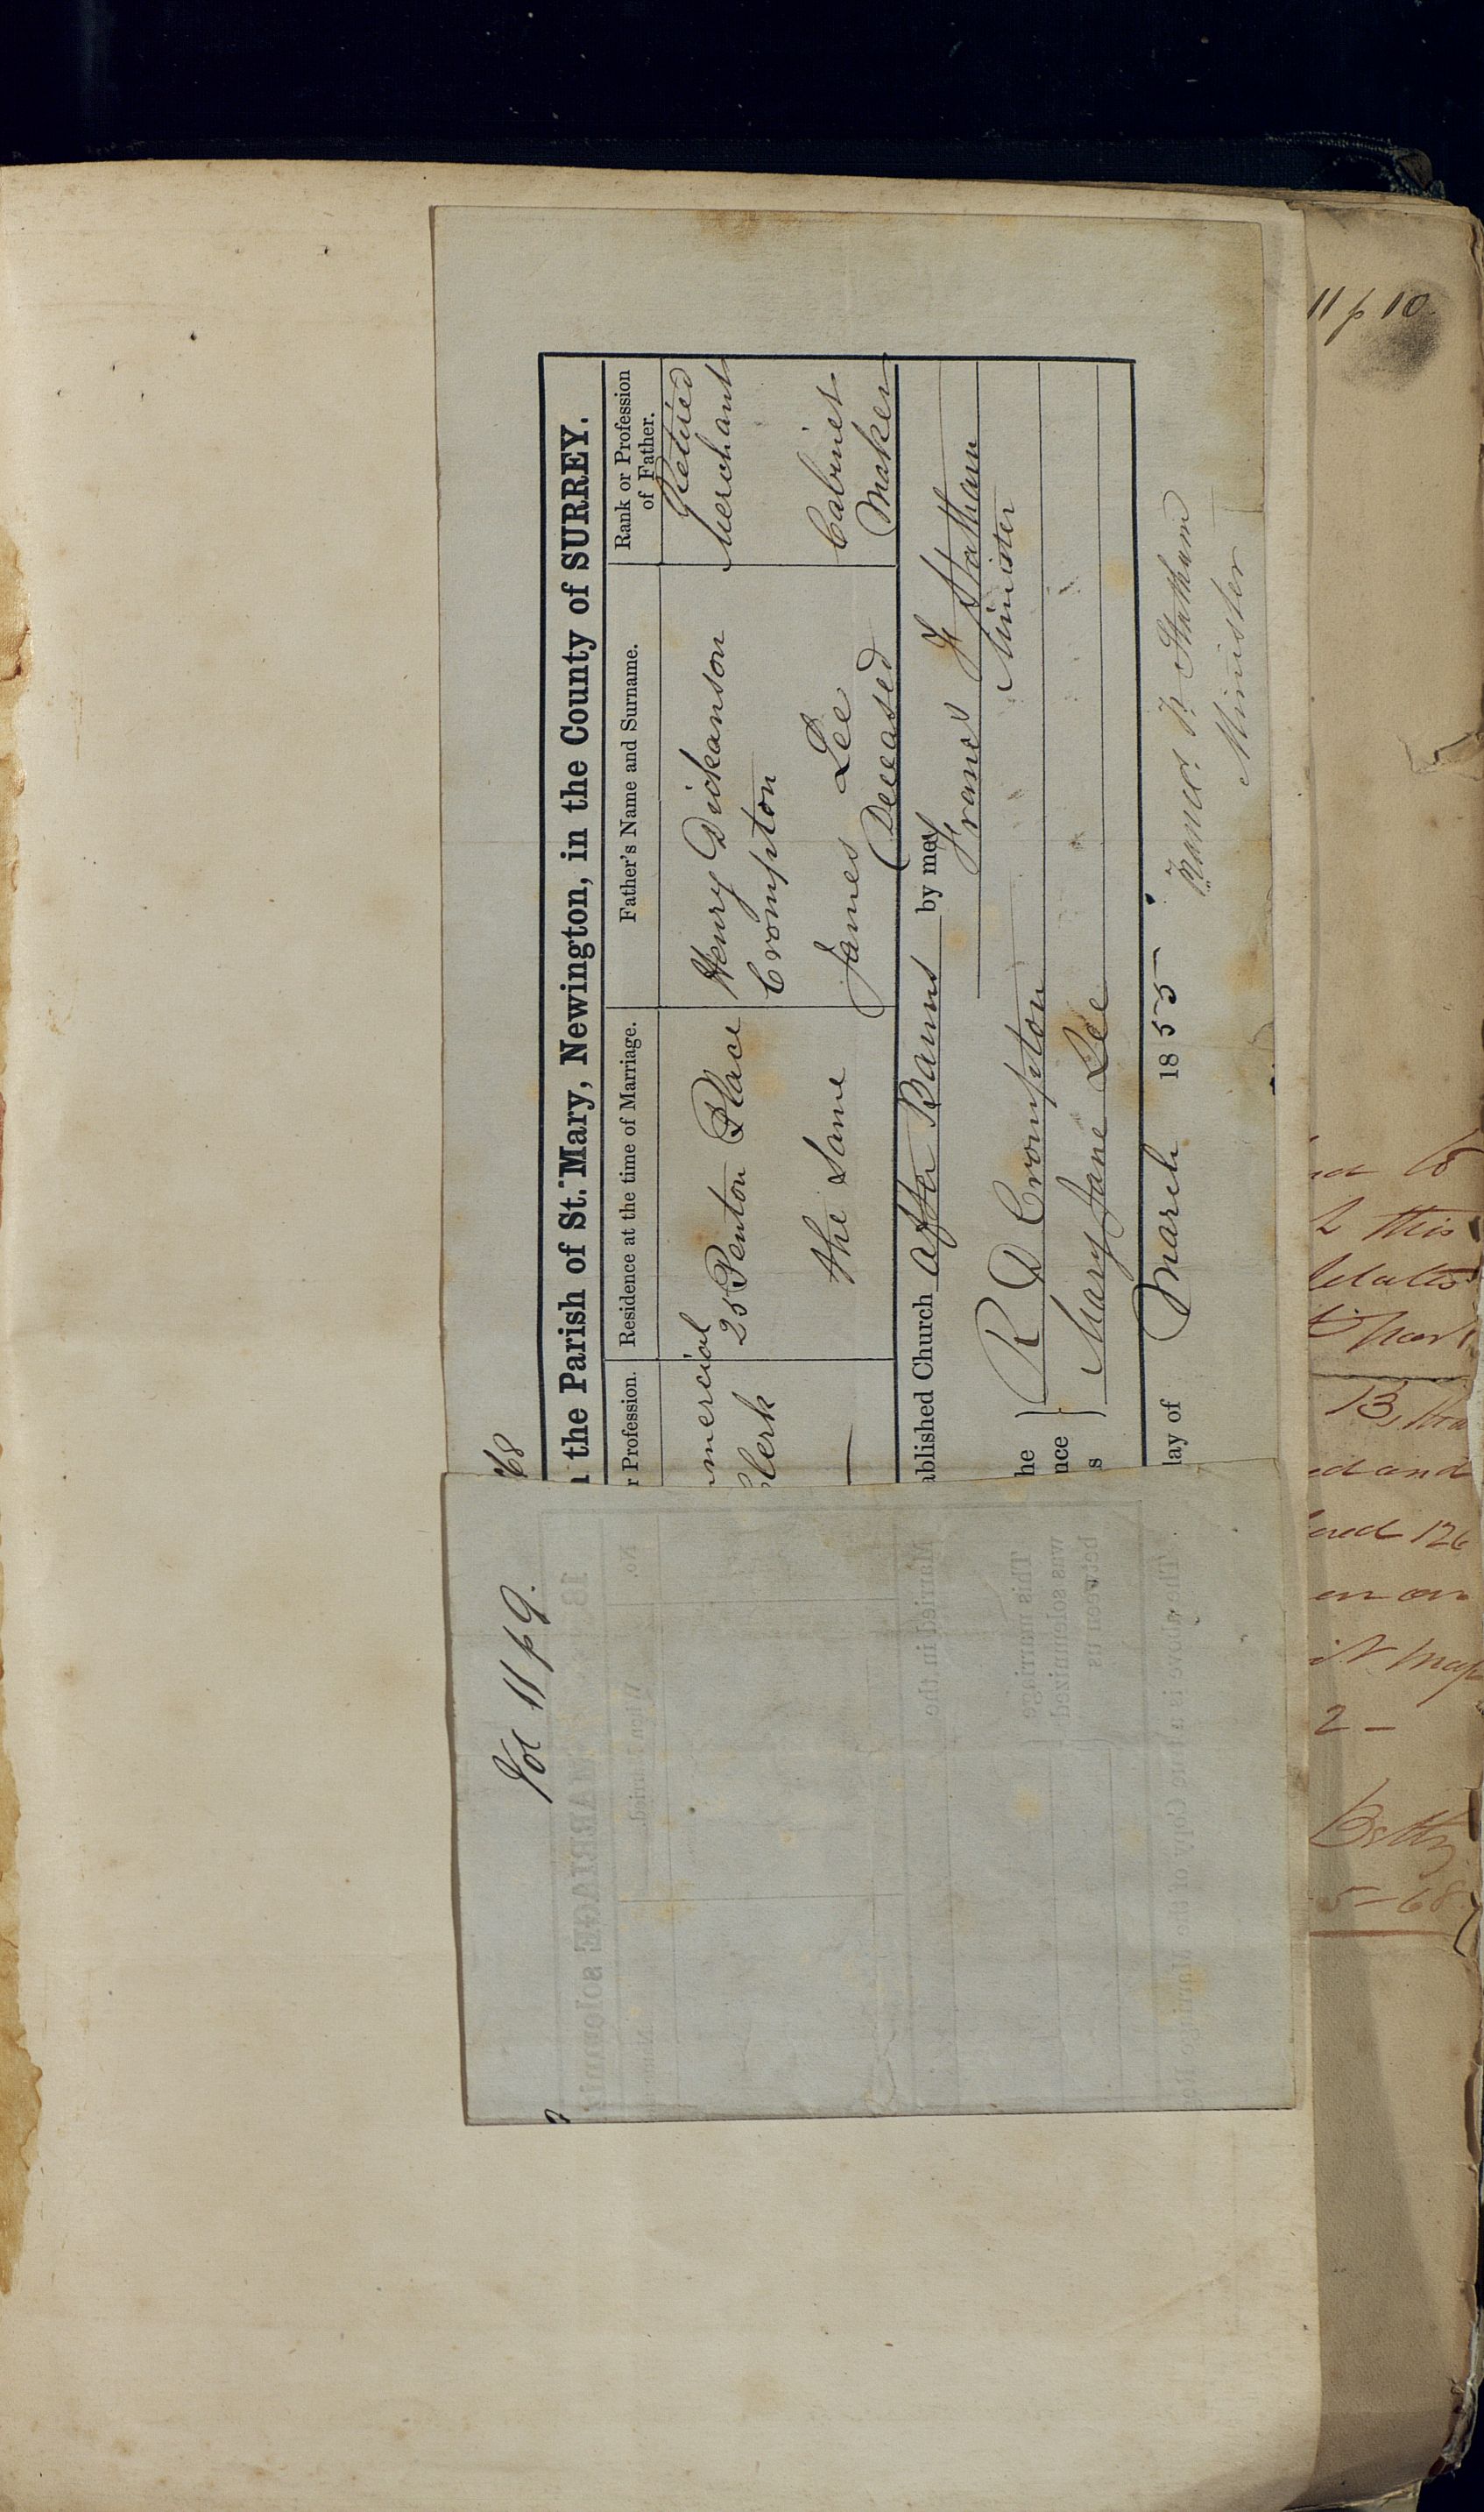 Vol 11 p 9.
68
the Parish of St. Mary, Newington, in the County of SURREY.
Profession.
Residence at the time of Marriage.
Father's Name and Surname.
Rank or Profession
of Father.
mercial
Clerk
25 Penton Place
Henry Dickanson
Crompton
Retired
Merchant
—
the Same
James Lee
Deceased
Cabinet
Maker
ablished Church after Banns by me,
Francis F Statham
Minister
he
nce
s
R D Crompton
Mary Jane Lee
day of March 1855
Francis F. Statham
Minister
11 p 10.
this
13,
ed and
126
en on
2 —
Betty
5-68
No.
When Married.
MARRIAGE solemniz
Married in the
This marriage
was solemnized
between us
The above is a true Copy of the Marriage Re